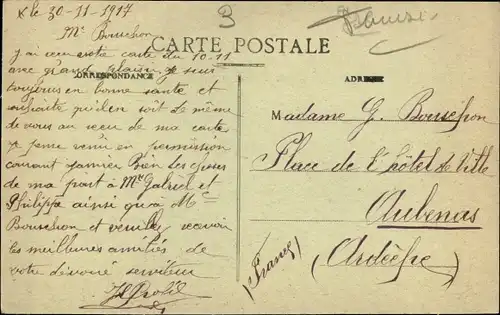 le 30-11-1917
3
Mr Bouschon
CARTE POSTALE
J'ai reçu votre carte du 10-11
avec Grand plaisir, je suis
CORRESPONDANCE
ADRESSE
toujours en bonne santé et
souhaite qu'il en soit de même
de vous au reçu de ma carte
Je pense venir en permission
courant janvier Bien des choses
de ma part à Mr Gabriel et
Philippe ainsi qu'à Me
Bouschon et veuillez recevoir
les meilleures amitiés de
votre dévoué serviteur
Madame G. Bouschon
Place de l'hôtel de Ville
Aubenas
(Ardèche)
(France)